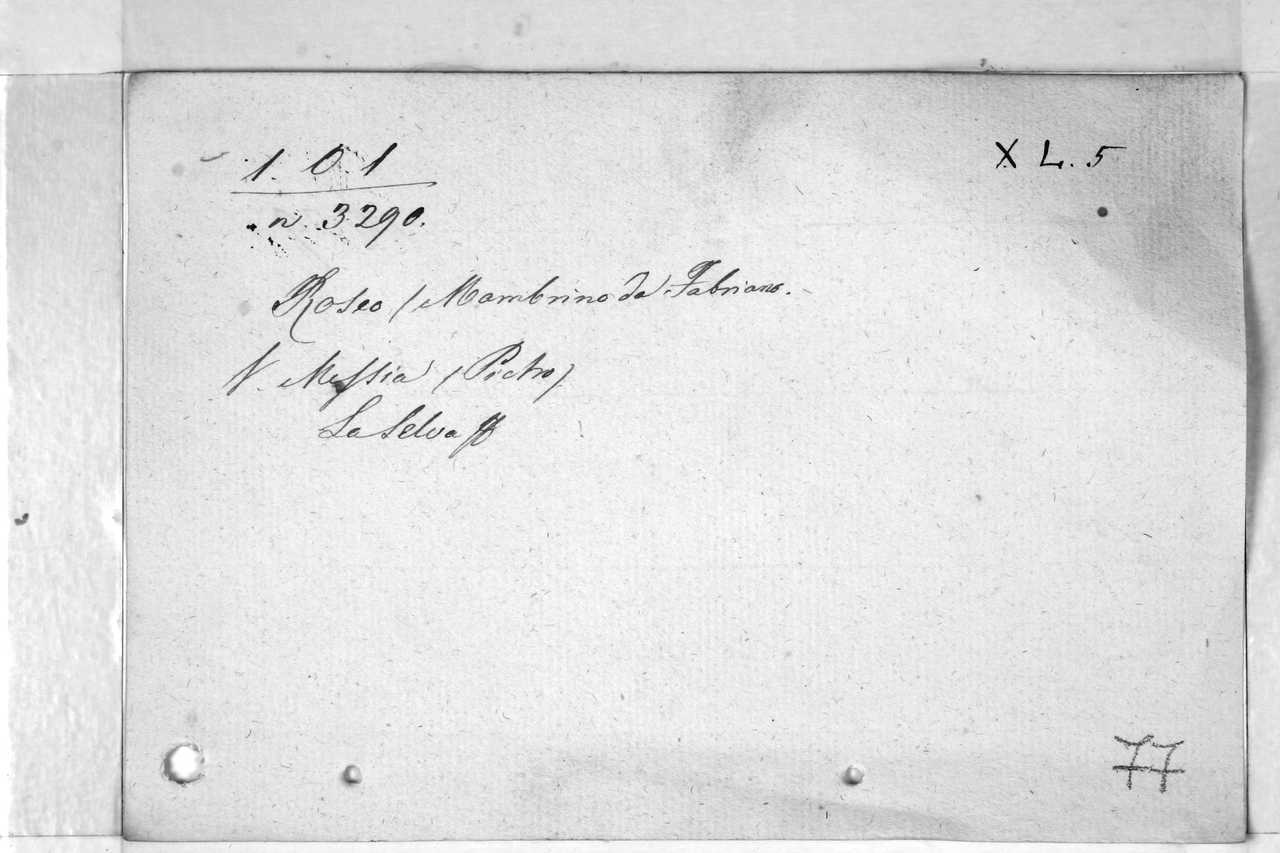 1. 0. 1
X L. 5
n. 3290.
Roseo (Mambrino da Fabriano.
V. Messia (Pietro)
La Selva
77